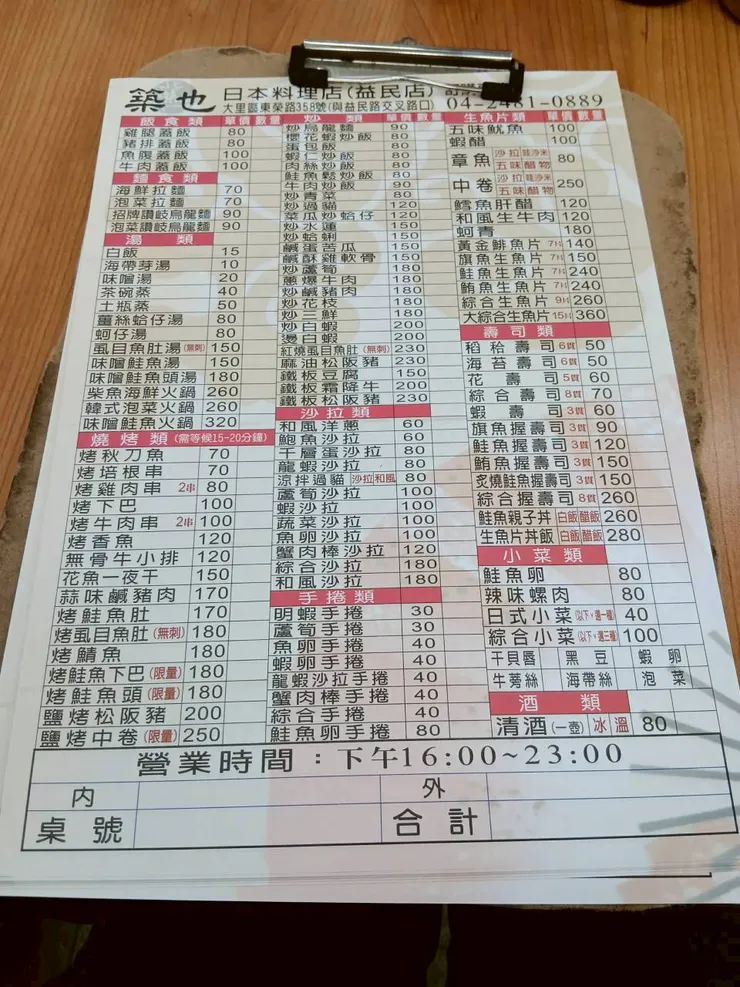 築也 日本料理店(益民店)
大里區東榮路358號(與益民路交叉路口) 04-2481-0889
飯食類 單價 數量
雞腿蓋飯 80
豬排蓋飯 80
魚腹蓋飯 100
牛肉蓋飯 100
麵食類
海鮮拉麵 70
泡菜拉麵 70
招牌讚岐烏龍麵 90
泡菜讚岐烏龍麵 90
湯類
白飯 15
海帶芽湯 10
味噌湯 20
茶碗蒸 40
土瓶蒸 50
薑絲蛤仔湯 80
蚵仔湯 80
虱目魚肚湯(無刺) 150
味噌鮭魚湯 150
味噌鮭魚頭湯 180
柴魚海鮮火鍋 260
韓式泡菜火鍋 260
味噌鮭魚火鍋 320
燒烤類(需等候15-20分鐘)
烤秋刀魚 70
烤培根串 70
烤雞肉串 2串 80
烤下巴 100
烤牛肉串 2串 100
烤香魚 120
無骨牛小排 120
花魚一夜干 150
蒜味鹹豬肉 170
烤鮭魚肚 170
烤虱目魚肚(無刺) 180
烤鯖魚 180
烤鮭魚下巴(限量) 180
烤鮭魚頭(限量) 180
鹽烤松阪豬 200
鹽烤中卷(限量) 250
炒類 單價 數量
炒烏龍麵 90
櫻花蝦炒飯 80
蛋包飯 80
蝦仁炒飯 80
肉絲炒飯 80
鮭魚鬆炒飯 80
牛肉炒飯 90
炒青菜 80
炒過貓 120
菜瓜炒蛤仔 120
炒水蓮 120
炒蛤蜊 150
鹹蛋苦瓜 150
鹹酥雞軟骨 150
炒蘆筍 150
蔥爆牛肉 180
炒鹹豬肉 180
炒花枝 180
炒三鮮 180
炒白蝦 200
燙白蝦 200
紅燒虱目魚肚(無刺) 230
麻油松阪豬 230
鐵板豆腐 150
鐵板霜降牛 200
鐵板松阪豬 230
沙拉類
和風洋蔥 60
鮑魚沙拉 60
千層蛋沙拉 80
龍蝦沙拉 80
涼拌過貓 沙拉 和風 80
蘆筍沙拉 100
蝦沙拉 100
蔬菜沙拉 100
魚卵沙拉 100
蟹肉棒沙拉 120
綜合沙拉 180
和風沙拉 180
手捲類
明蝦手捲 30
蘆筍手捲 30
魚卵手捲 40
蝦卵手捲 40
龍蝦沙拉手捲 40
蟹肉棒手捲 40
綜合手捲 40
鮭魚卵手捲 80
生魚片類 單價 數量
五味魷魚 100
蝦醋 100
章魚 沙拉 哇沙米 五味 醋物 80
中卷 沙拉 哇沙米 五味 醋物 250
鱈魚肝醋 120
和風生牛肉 120
蚵青 180
黃金鯡魚片 7片 140
旗魚生魚片 7片 150
鮭魚生魚片 7片 240
鮪魚生魚片 7片 240
綜合生魚片 9片 260
大綜合生魚片 15片 360
壽司類
稻秴壽司 6貫 50
海苔壽司 6貫 50
花壽司 5貫 60
綜合壽司 8貫 70
蝦壽司 3貫 60
旗魚握壽司 3貫 90
鮭魚握壽司 3貫 120
鮪魚握壽司 3貫 150
炙燒鮭魚握壽司 3貫 150
綜合握壽司 8貫 260
鮭魚親子丼 白飯 醋飯 260
生魚片丼飯 白飯 醋飯 280
小菜類
鮭魚卵 80
辣味螺肉 80
日式小菜(以下v選一種) 40
綜合小菜(以下v選三種) 100
干貝唇 黑豆 蝦卵
牛蒡絲 海帶絲 泡菜
酒類
清酒(一壺) 冰 溫 80
營業時間：下午16:00~23:00
內 外
桌號 合計